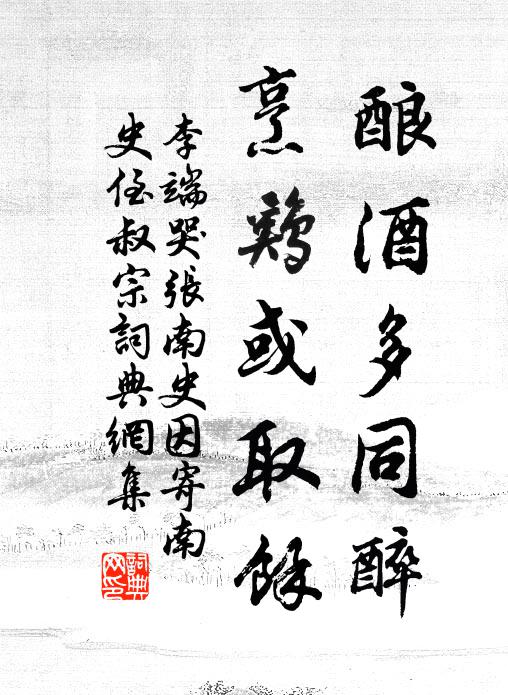 酿酒多同醉
烹鸡或取馀
李端哭張南史因寄南
史侄叔宗詞典網集
詞典网印